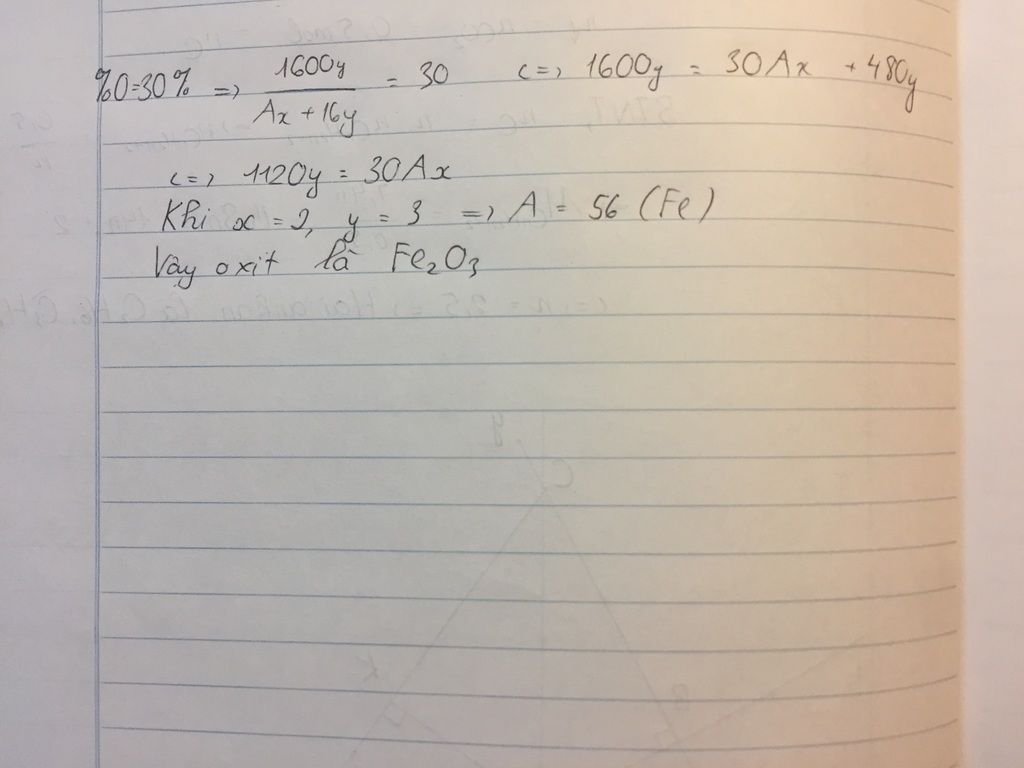 %O=30% => 1600y / (Ax + 16y) = 30 <=> 1600y = 30Ax + 480y
<=> 1120y = 30Ax
Khi x = 2, y = 3 => A = 56 (Fe)
Vậy oxit là Fe2O3